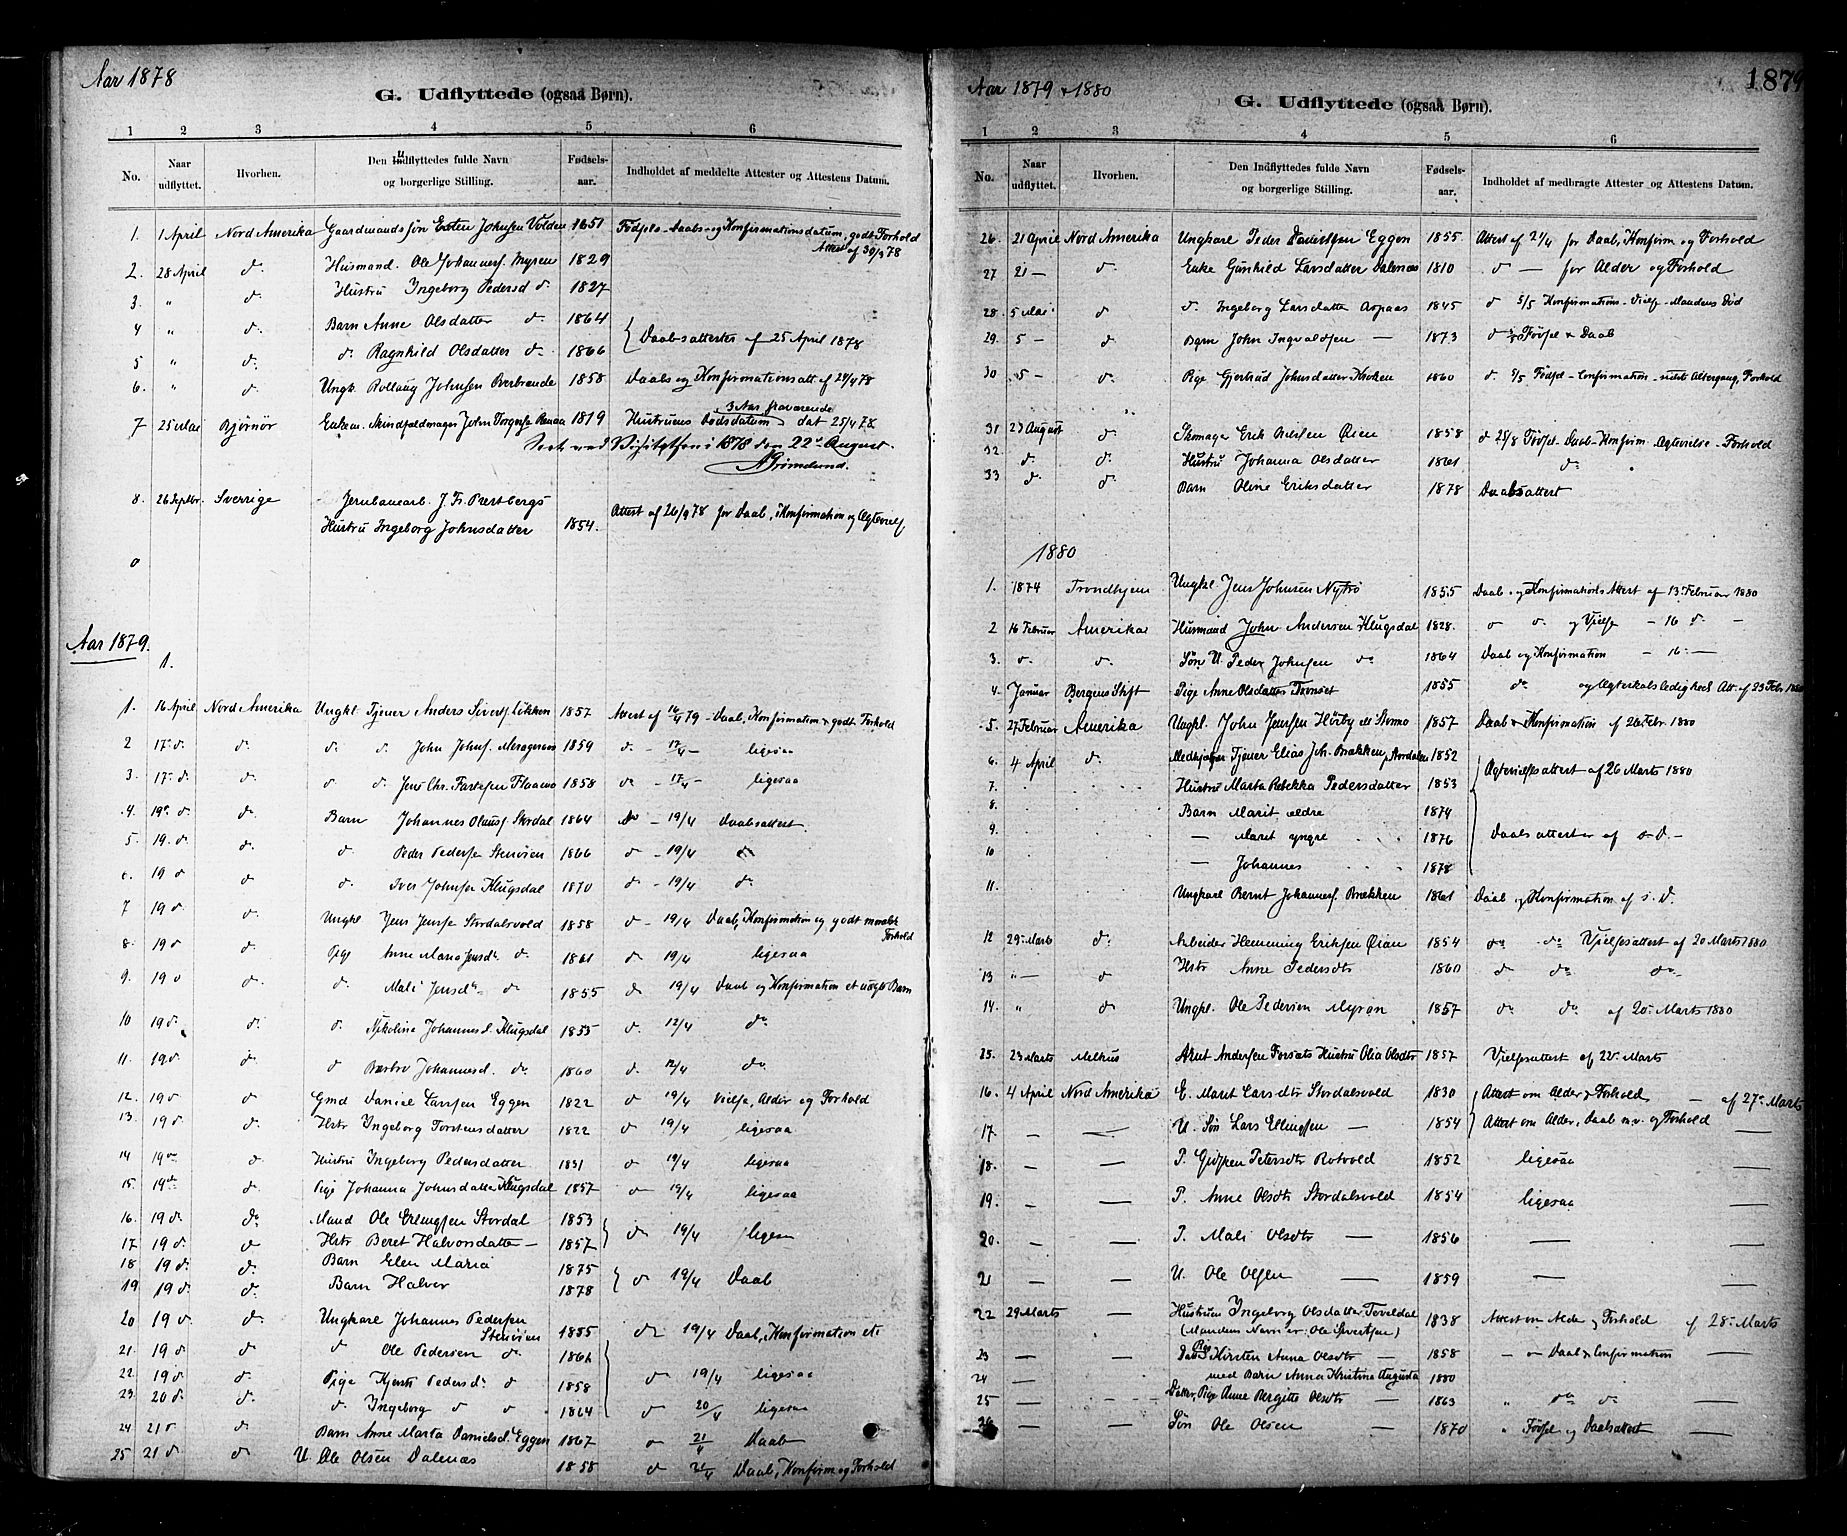 Aar 1878
G. Udflyttede (ogsaa Børn).
1 2 3 4 5 6
No. Naar udflyttet. Hvorhen. Den Indflyttedes fulde Navn og borgerlige Stilling. Fødsels-aar. Indholdet af meddelte Attester og Attestens Datum.
1. 1 April Nord Amerika Gaardmandssøn Esten Johnsen Volden 1851 Fødsels- Daabs- og Konfirmationsdatum, godt Forhold
Attest af 30/3 78
2. 28 April do Husmand. Ole Johanness. Myren 1829
3. " do Hustru Ingeborg Pedersd do 1827
4 " do Barn Anne Olsdatter do 1864
Daabsattester af 25 April 1878
5 " do do Ragnhild Olsdatter do 1866
6. " do Ungk. Rollaug Johnsen Overbrande 1858 Daabs og Konfirmationsatt af 24/4 78
3 Aar fraværende
7 25 Mai Bjørnør Enkem. Skindfeldmager John 1819 Hustruens Dødsdatum dat 25/4 78.
Seet ved Visitatsen i 1878 den 22de August.
8. 26 Septbr. Sverrige Jernbanearb. J. Fr.
Hustru Ingeborg Johnsdatter 1854. Attest af 26/9 78 for Daab, Konfirmation og Ægtevielse
0
Aar 1879.
1.
1. 16 April Nord Amerika Ungkl Tjener Anders Sivertss Løkken 1857 Attert af 16/4 79 - Daab, Konfirmation & godt Forhold
2 17 d. do do do John Johns. 1859 do - 17/4 - ligesaa
3. 17 d. do do do Jens Chr. 1858 do - 17/4 - ligesaa
4. 19 d. do Barn Johannes Olauss. Stordal 1864 do - 19/4 Daabsattert.
5. 19. d. do do Peder Pedersen Stenvien 1866 do - 19/4 do
6. 19 d do do Iver Johnsen Klugsdal 1870 do - 19/4 do
7 19 d do Ungkl Jens Jensse Stordalsvold 1858 do - 19/4 Daab, Konfirmation og godt moralsk
Forhold
8. 19 d do Pige Anne Maria Jensdr do 1861 do 19/4 ligesaa
9. 19 d do. do. Mali Jensdr do 1855 do 19/4 Daab og Konfirmation et uægte Barn
10 19 d. do do Nikolina Johannesd. Klugsdal 1855 do. 12/4 do
11. 19 d. do do Barbro Johannesd. do 1860 do. 12/4 do.
12. 19 d do Gmd Daniel Larssen Eggen 1822 do 19/4 Vielse, Alder og Forhold
13. 19 d. do Hstr Ingeborg Torstensdatter 1822 do 19/4 ligesaa
14 19 do do Hustru Ingeborg Pedersdatter 1831 do 19/4 ligesaa
15. 19 do do Pige Johanna Johnsdatter Klugsdal 1857 do 19/4 ligesaa
16. 19 d. do Mand Ole Erlingssen Stordal 1853
17 19 d. do Hstr Beret Halvorsdatter - 1857 do 19/4 ligesaa
18 19 d. do. Barn Elen Maria 1875
19 19 d. do. Barn Halvor 1878 do 19/4 Daab
20 19 d. do. Ungkarl Johannes Pedersen
Stenvien 1855 do 19/4 Daab, Konfirmation etc
21. 19 d. do do Ole Pedersen do. 1862
22. 19 d. do. Pige Kjersti Pedersdr do 1858 do 19/4 ligesaa
23. 20 d. do. do Ingeborg do do 1864 do 20/4 ligesaa
24 21 d do Barn Anne Marta Danielsd. Eggen 1867 do 21/4 Daab
25 21 d. do U. Ole Olsen Dalenæs 1858 do 21/4 Daab, Konfirm og Forhold
Aar 1879 & 1880
1879
G. Udflyttede (ogsaa Børn).
1 2 3 4 5 6
No. Naar udflyttet. Hvorhen. Den Indflyttedes fulde Navn og borgerlige Stilling. Fødsels-aar. Indholdet af medbragte Attester og Attestens Datum.
26. 21 April Nord Amerika Ungkarl Peder Danielssen Eggen 1855. Attert af 21/4 for Daab, Konfirm og Forhold
27 21 - do Enke Gunhild Larsdatter Dalenæs 1810 do - for Alder og Forhold
28. 5 Mai do do. Ingeborg Larsdatter Aspaas 1845 do 5/5 Konfirmations- Vielse- Mandens Død
29. 5 - do. Barn John Ingvaldsen - 1873 do Fødsel & Daab
30 5 - do. Pige Gjertrud Johnsdatter Kroken 1860 do. 5/5 Fødsel - Confirmation - sidste Altergang, Forhold
31 23 August do. Skomager Erik Øien 1858 do 25/8 Fødsel- Daab- Konfirm- Ægtevielse- Forhold
32. do. do. Hustru Johanna Olsdatter 1861 do.
33 do. do. Barn Oline Eriksdatter 1878 Daabsattert
1880
1. 1874 Trondhjem Ungkl. Jens Johnsen Nytrø 1855 Daab og Konfirmations Attert af 13 Februar 1880
2 16 Februar Amerika Husmand John Andersen Klugsdal 1828. do do. og Vielse - 16 d. -
3. do. do. Søn U. Peder Johnsen do 1864 Daab og Konfirmation - 16 -
4. Januar Bergens Stift Pige Anne Olsdatter Trønset 1855 do og Ægteskabsledighed Att. af 23 Febr 1880
5. 27 Februar Amerika Ungkl. John Jenssen Hörby 1857 Daab & Konfirmation af 26 Febr. 1880
6. 4 April do. Tjener Elias Joh. Brækken, Stordalen 1852
Ægtevielsesattert af 26 Marts 1880
7. Hustru Marta Rebekka Pedersdatter 1853
8. Barn Marit ældre 1874
9. - Marit yngre 1876 Daabsattester af s. D. -
10 - Johannes 1878
11. Ungkarl Bernt Johannesf. Brækken 1861 Daab og Konfirmation af s. D.
12 29 Marts do. Arbeider Hemming Eriksen Øian 1854 do do Vielsesattert af 20 Marts 1880
13 " - do Hstr Anne Pedersdtr 1860 do do do
14. " do Ungkl. Ole Pedersen Myran 1857 do. do. af 20 Marts 1880
25. 23 Marts Melhus Arnt Andersen Hustru Olia Olsdtr 1857 Vielsesattert af 22 Marts
16. 4 April Nord Amerika E. Marit Larsdtr Stordalsvold 1830 Attert om Alder & Forhold - af 27 Marts
17. - - U. Søn Lars Ellingssen - 1854 Attert om Alder, Daab m.v. og Forhold -
18. - - P. Petersdtr Rotvold 1852 ligesaa -
19. - - P. Anne Olsdtr Stordalsvold 1854 ligesaa -
20. - - P. Mali Olsdtr - 1856 - -
21 - - U. Ole Olsen - 1859 - -
22 29 Marts - Hustruen Ingeborg Olsdatter Teveldal 1838 Attert om Alder og Forhold af 28 Marts
(Mandens Navn er: Ole Sivertsen)
23 - - Pige Kirsten Anna Olsdtr - 1858 - do Daab & Confirmation -
24 - med Barn Anna Kristina Augusta 1880
25 - - Datter, Pige Anne Bergitte Olsdtr - 1863 " do do. -
26 - - Søn Ole Olsen - 1870 " Fødsel og Daabsattest -